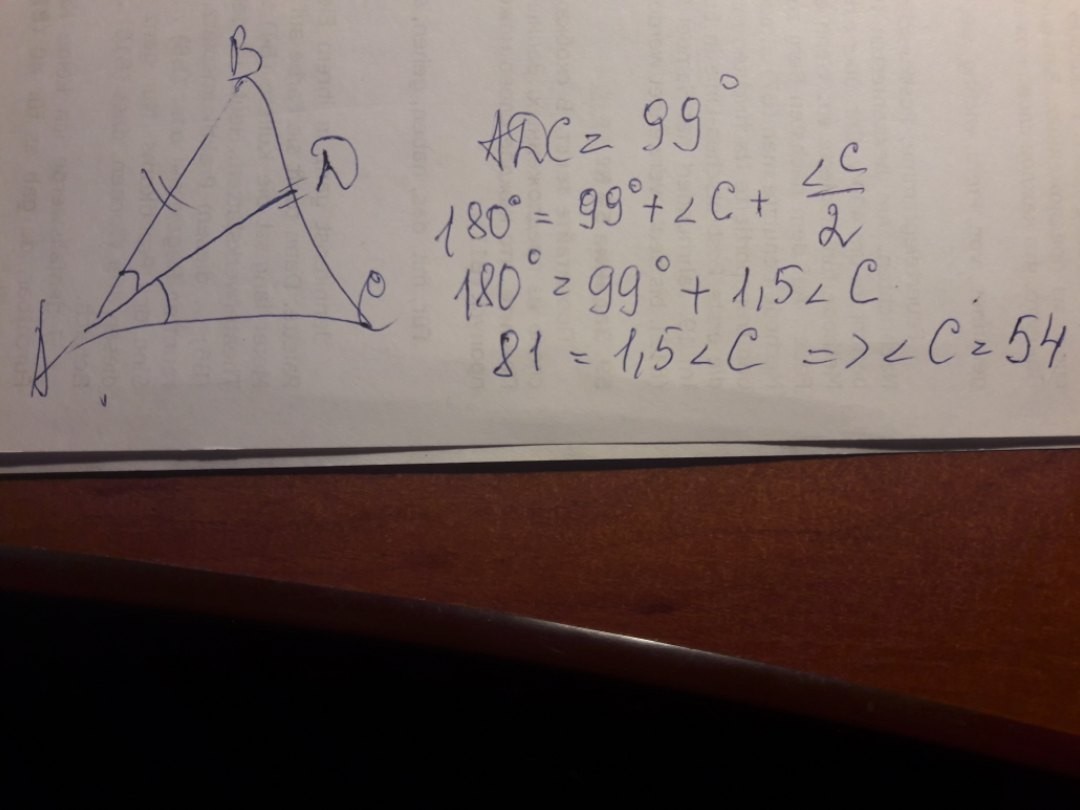 B
D
A
C
ADC = 99°
180° = 99° + ∠C + ∠C/2
180° = 99° + 1,5∠C
81 = 1,5∠C => ∠C = 54